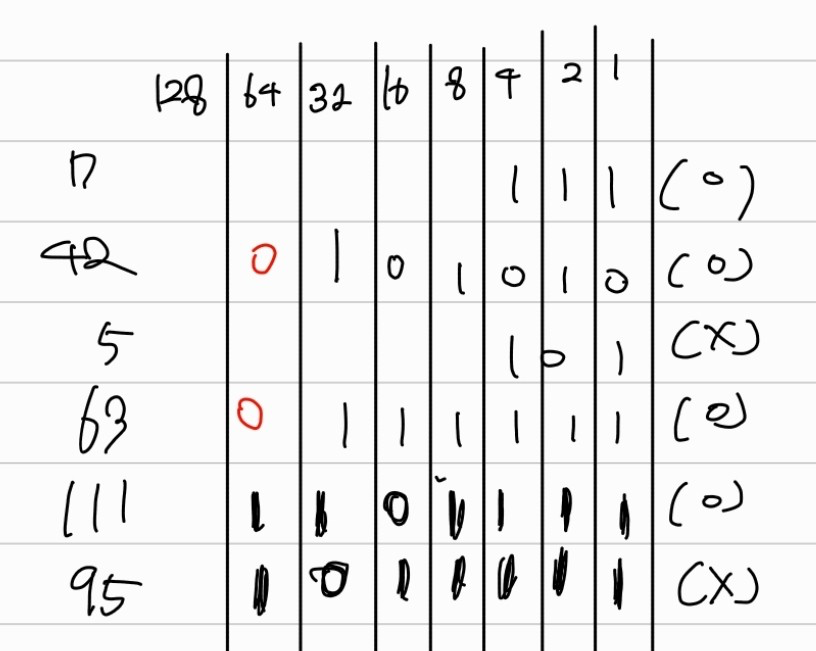 128 64 32 16 8 4 2 1
7 1 1 1 (O)
42 0 1 0 1 0 1 0 (O)
5 1 0 1 (X)
63 0 1 1 1 1 1 1 (O)
111 1 1 0 1 1 1 1 (O)
95 1 0 1 1 1 1 1 (X)